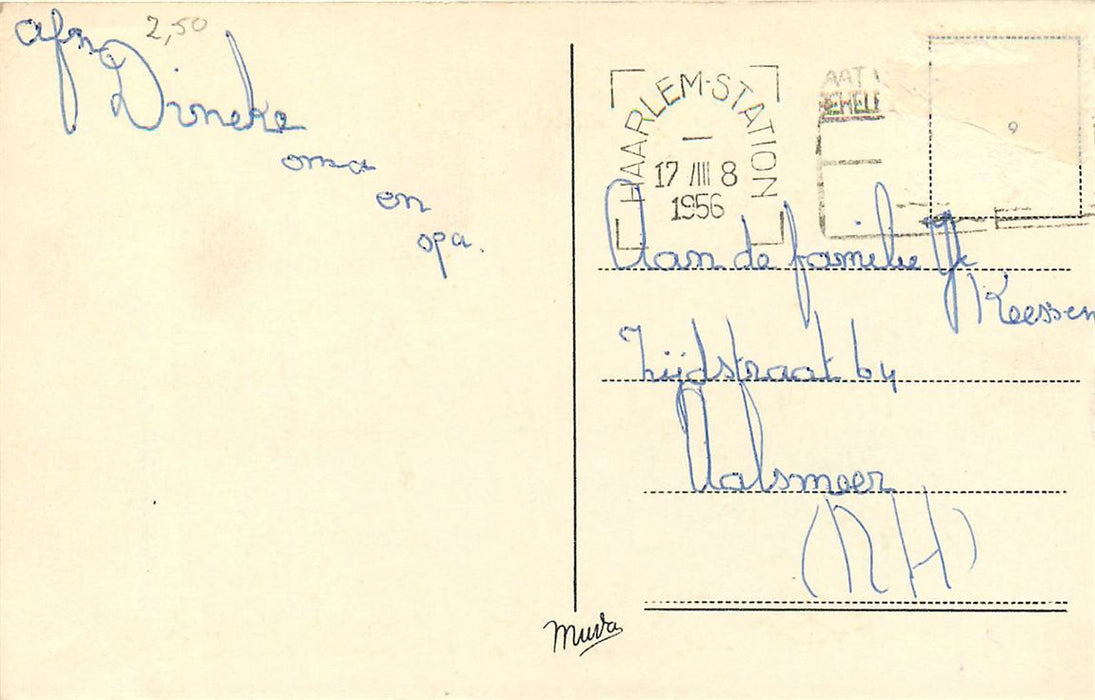 2,50
afn
Dineke
oma
en
opa.
HAARLEM-STATION
17 IIII 8
1956
AAT
Aan de familie
Keessen
Zijdstraat 64
Aalsmeer
(NH)
Muva